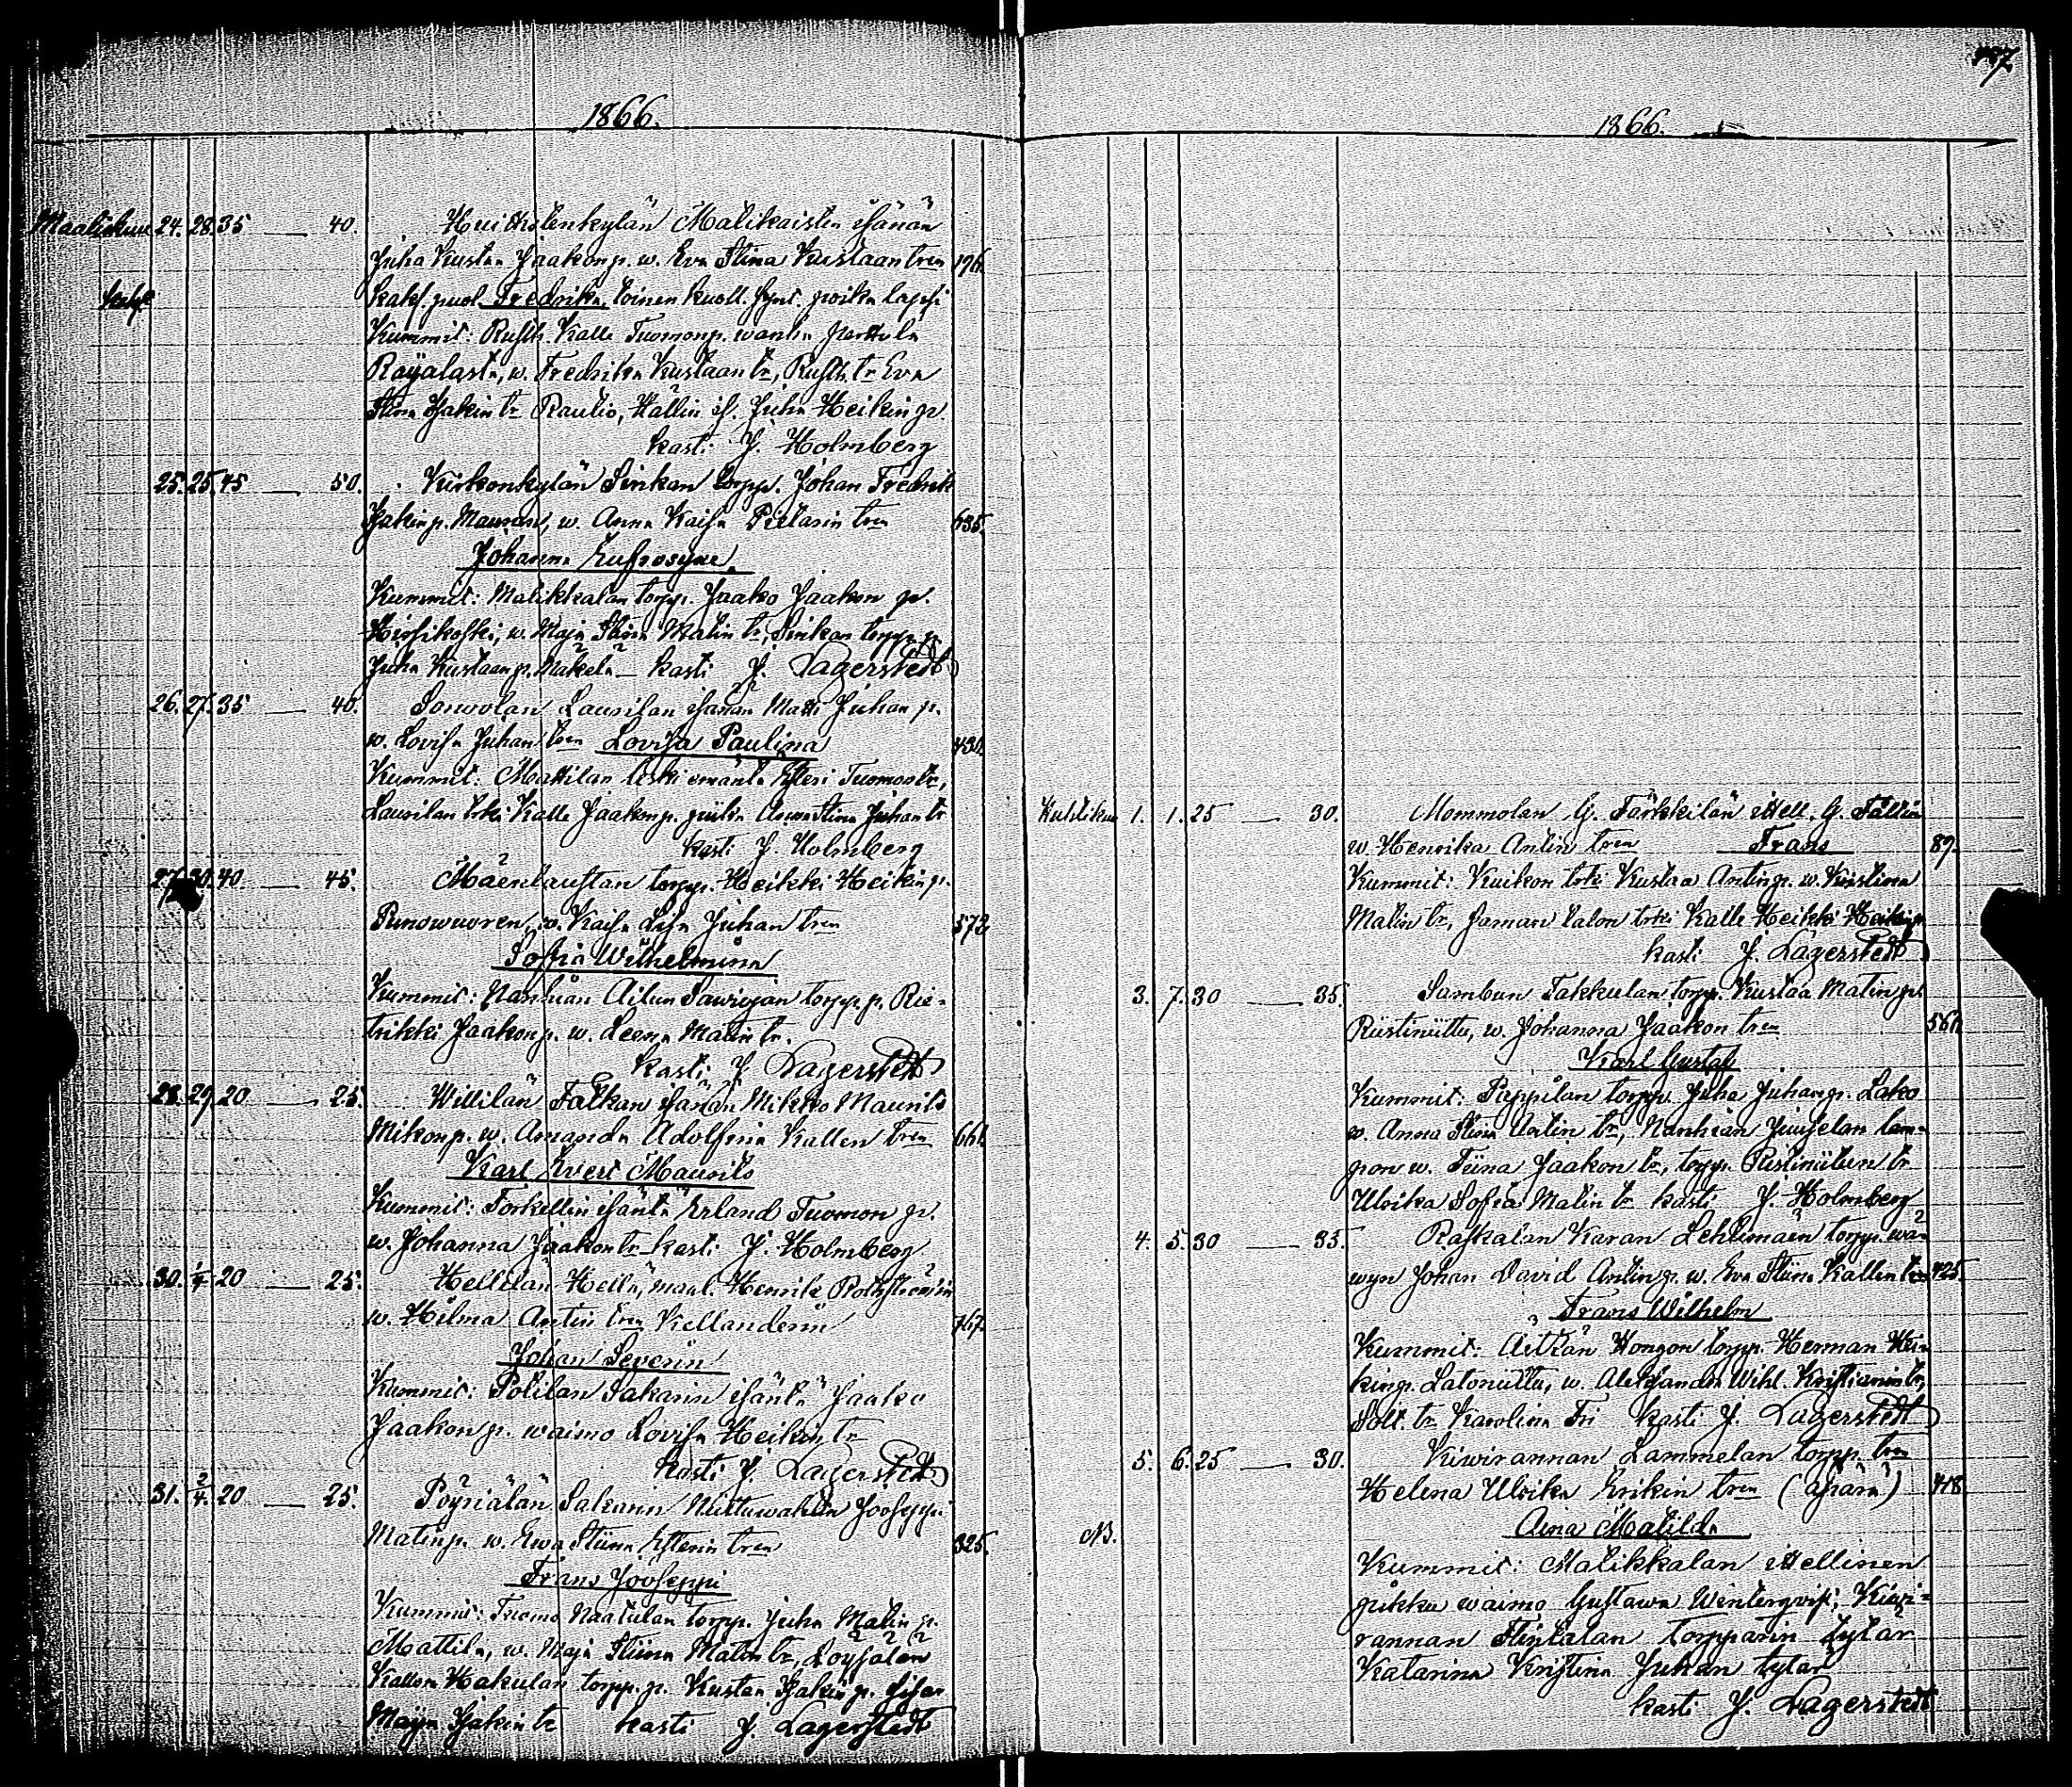 1866.
Maaliskuu 24. 28. 35 — 40. Huittistenkylän Matikaisten isänän
Juha Kustaa Jaakonp. w. Eva Stina Kustaan tren 196.
kaks. puol. Fredrika, toinen kuoll. synt. poika lapsi
Kummit: Rusth. Kalle Tuomonp. wanha
w. Fredrika Kustaan tr, Rusth. tr Eva
Stina Isakin tr Rautio, Hällin is. Juha Heikin p.
kasti J. Holmberg
25. 25. 45 — 50. Kirkonkylän Sinkan torpp. Johan Fredrik
Isakin p. w. Anna Kaisa Pietarin tren 635.
Johanna Eufrosyne
Kummit: Matikkalan torpp. Jaako Jaakon p.
Hirsikoski, w. Maja Stina Matin tr, Sinkan torpp. p.
Juha Kustaan p. Mäkelä — kasti J. Lagerstedt
26. 27. 35 — 40. Sonwolan Laurilan isänän Matti Juhan p.
w. Lovisa Juhan tren Lovisa Paulina 430.
Kummit: Mattilan leski emäntä Esteri Tuomon tr,
Laurilan trki Kalle Jaakonp. piika Anna Stina Juhan tr
kasti J. Holmberg
27. 30. 40 — 45. Mäenlaustan torpp. Heikki Heikin p.
Runowuoren, w. Kaisa Lisa Juhan tren 572
Sofia Wilhelmina
Kummit: Nanhian Ailun Sawiojan torpp. p. Rie-
trikki Jaakon p. w. Leena Matin tr.
kasti J. Lagerstedt
28. 29. 20 — 25. Willilän Falkan isänän Mikko Maurits
Mikonp. w. Amanda Adolfina Kallen tren 661.
Karl Evert Maurits
Kummit: Torkellin isäntä Erland Tuomon p.
w. Johanna Jaakon tr kasti J. Holmberg
30. 1/4. 20 — 25. Hellilän Hellä, maal. Henrik
w. Hilma Antin tren Kellanderin 767.
Johan Severin
Kummit: Potilan Sakarin isäntä Jaako
Jaakon p. waimo Lovisa Heikin tr
kasti J. Lagerstedt
31. 2/4. 20 — 25. Pöyriälän Sakarin Niittuwahdin Jooseppi
Matinp. w. Ewa Stiina Esterin tren 325.
Frans Jooseppi
Kummit: Tuomo Naatulan torpp. Juha Matin p.
Mattila, w. Maja Stiina Matin tr, Loysälän
Kallon Hakulan torpp. p. Kustaa Isakin p. sisar
Maija Isakin tr kasti J. Lagerstedt
1866.
Huhtikuu 1. 1. 25 — 30. Mommolan G. Tärkkilän itsell. G. Tällin
w. Henrika Antin tren Frans 89.
Kummit: Kuikon trki Kustaa Antin p. w. Kristina
Matin tr, saman talon trki Kalle Heikki Heikin p.
kasti J. Lagerstedt
3. 7. 30 — 35. Sambun Takkulan torpp. Kustaa Matin p.
Ristiniittu, w. Johanna Jaakon tren 566.
Karl Gustaf
Kummit: Pappilan torpp. Juha Juhan p. Lako
w. Anna Stina Antin tr, Nanhian Juuselan lam-
puon w. Tiina Jaakon tr, torpp. Ristiniitun tr
Ulrika Sofia Matin tr kasti J. Holmberg
4. 5. 30 — 35. Raskalan Karan Lehtimäen torpp. wä-
wyn Johan David Antin p. w. Eva Stiina Kallen tren 425.
Frans Wilhelm
Kummit: Äitsän Hongon torpp. Herman Hei-
kin p. Latoniittu, w. Alexandra Wilh. Kristianin tr,
Solt. tr Karolina Fri kasti J. Lagerstedt
5. 6. 25 — 30. Kiwirannan Lammelan torpp. tren
Helena Ulrika Erikin tren (äpärä) 418
NB. Aina Matilda
Kummit: Matikkalan itsellinen
pikku waimo Gustawa Winterqvist, Kiwi-
rannan torpparin tytär
Katarina Kristina Juhan tytär
kasti J. Lagerstedt